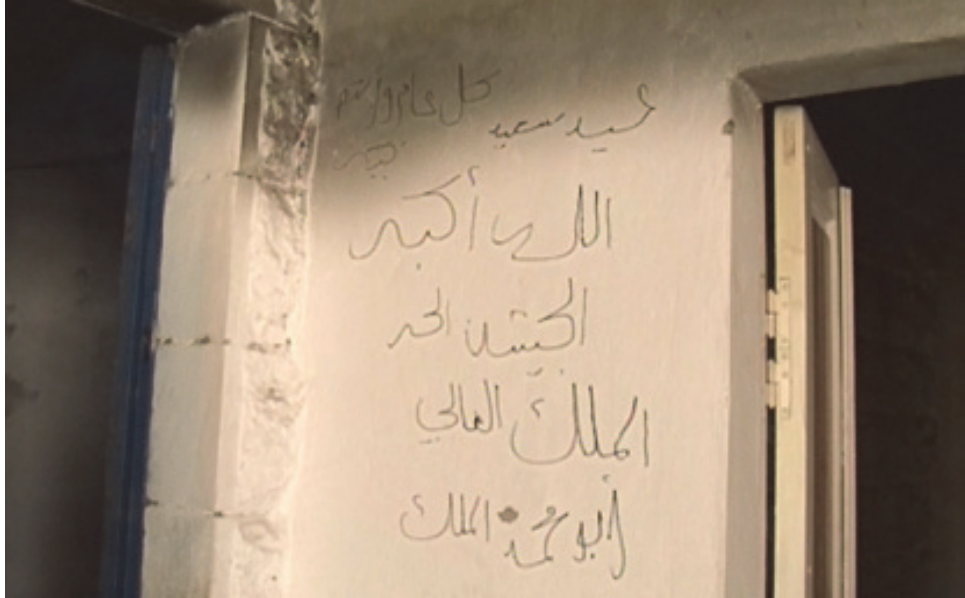 عيد سعيد كل عام وأنتم
بخير
الله أكبر
الجيش الحر
الملك الغالي
أبو محمد الملك